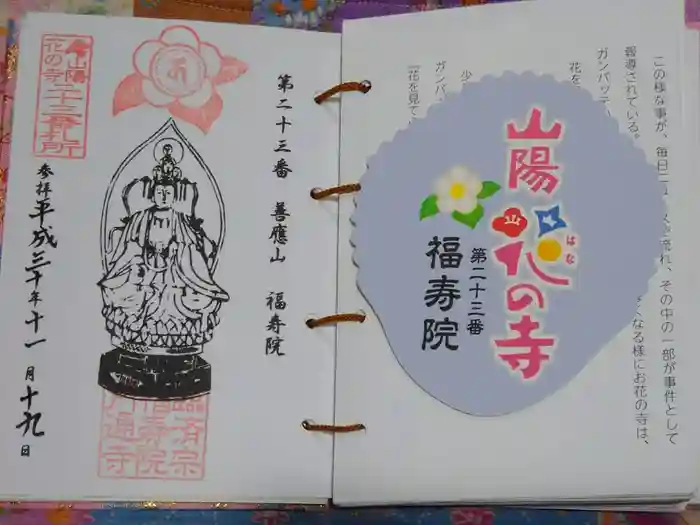 山陽
花の寺
二十三番札所
第二十三番 善應山 福寿院
参拝 平成三十年十一月十九日
臨済宗
福寿院
通寺
この様な事が、毎日ニュ 流れ、その中の一部が事件として
報導されている。
なる様にお花の寺は、
ガンバッテ
花を
少
ガンバッ
「花を見て
山陽
花の寺
はな
第二十三番
福寿院